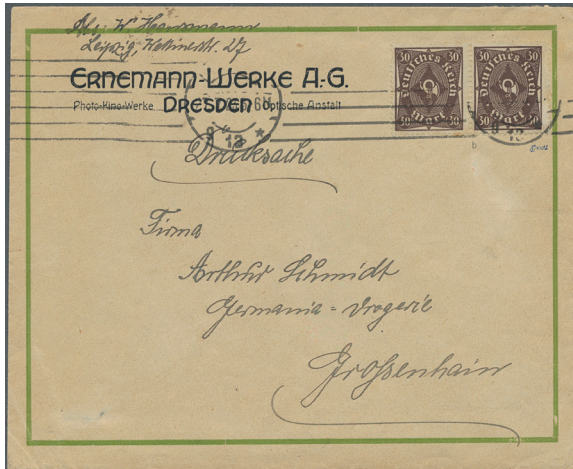 Abs. W. Hansmann
Leipzig, Wettinerstr. 27
ERNEMANN-WERKE A-G.
Photo-Kino-Werke DRESDEN Optische Anstalt
9
12
30 30
Deutsches Reich
Mark
30 30
30 30
Deutsches Reich
Mark
30 30
b
Drucksache
Firma
Arthur Schmidt
Germania-Drogerie
Grossenhain